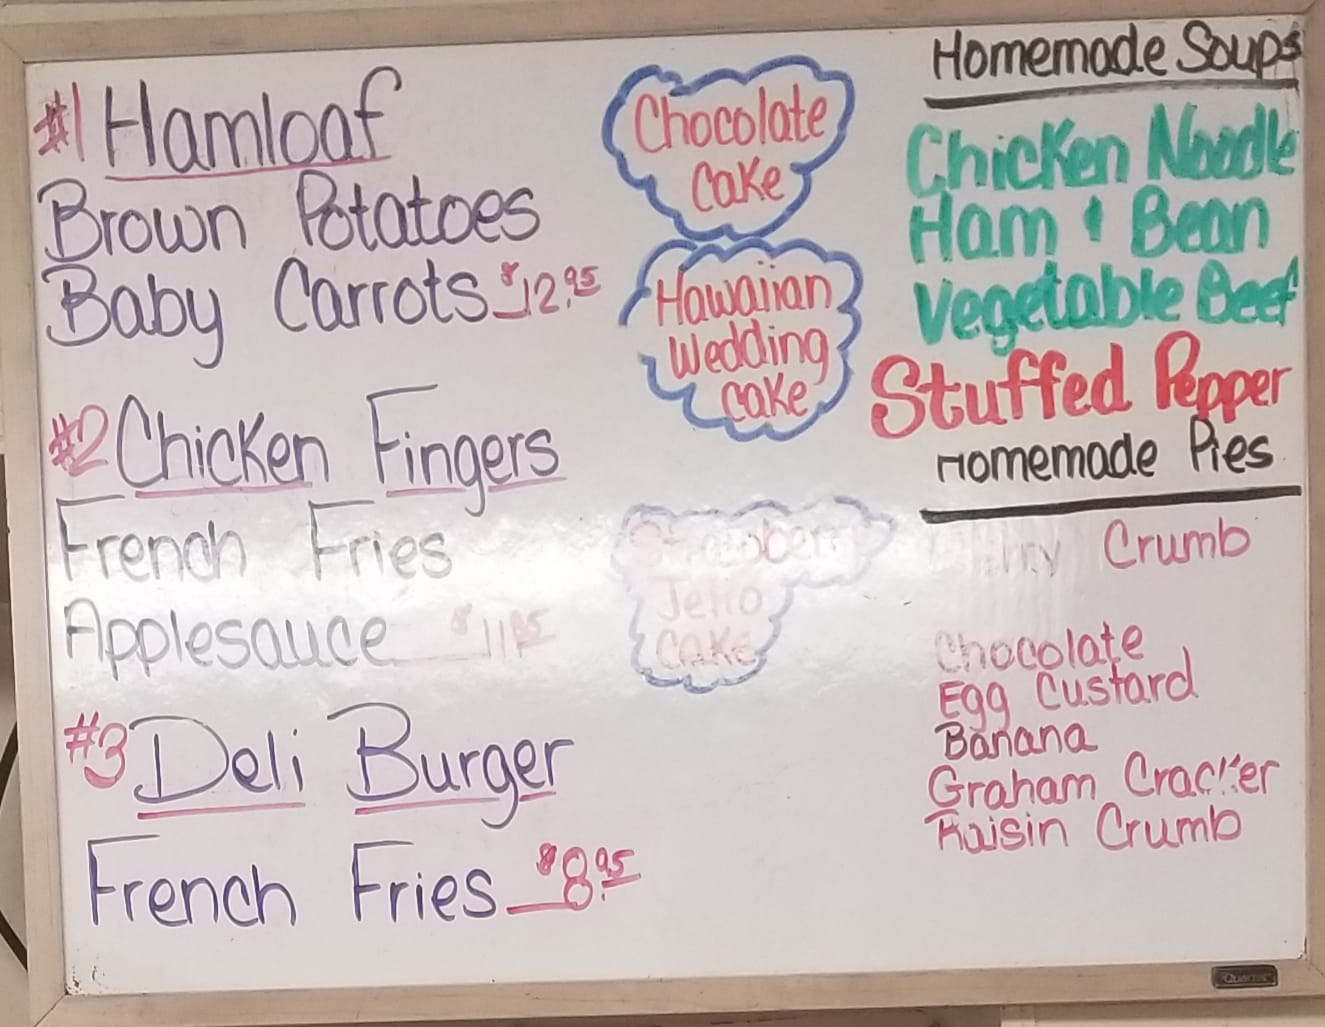 #1 Hamloaf
Brown Potatoes
Baby Carrots $12.95
#2 Chicken Fingers
French Fries
Applesauce $11.95
#3 Deli Burger
French Fries $8.95
Chocolate
Cake
Hawaiian
Wedding
Cake
Strawberry
Jello
CAKE
Homemade Soups
Chicken Noodle
Ham & Bean
Vegetable Beef
Stuffed Pepper
Homemade Pies
Crumb
Chocolate
Egg Custard
Banana
Graham Cracker
Raisin Crumb
Quartet